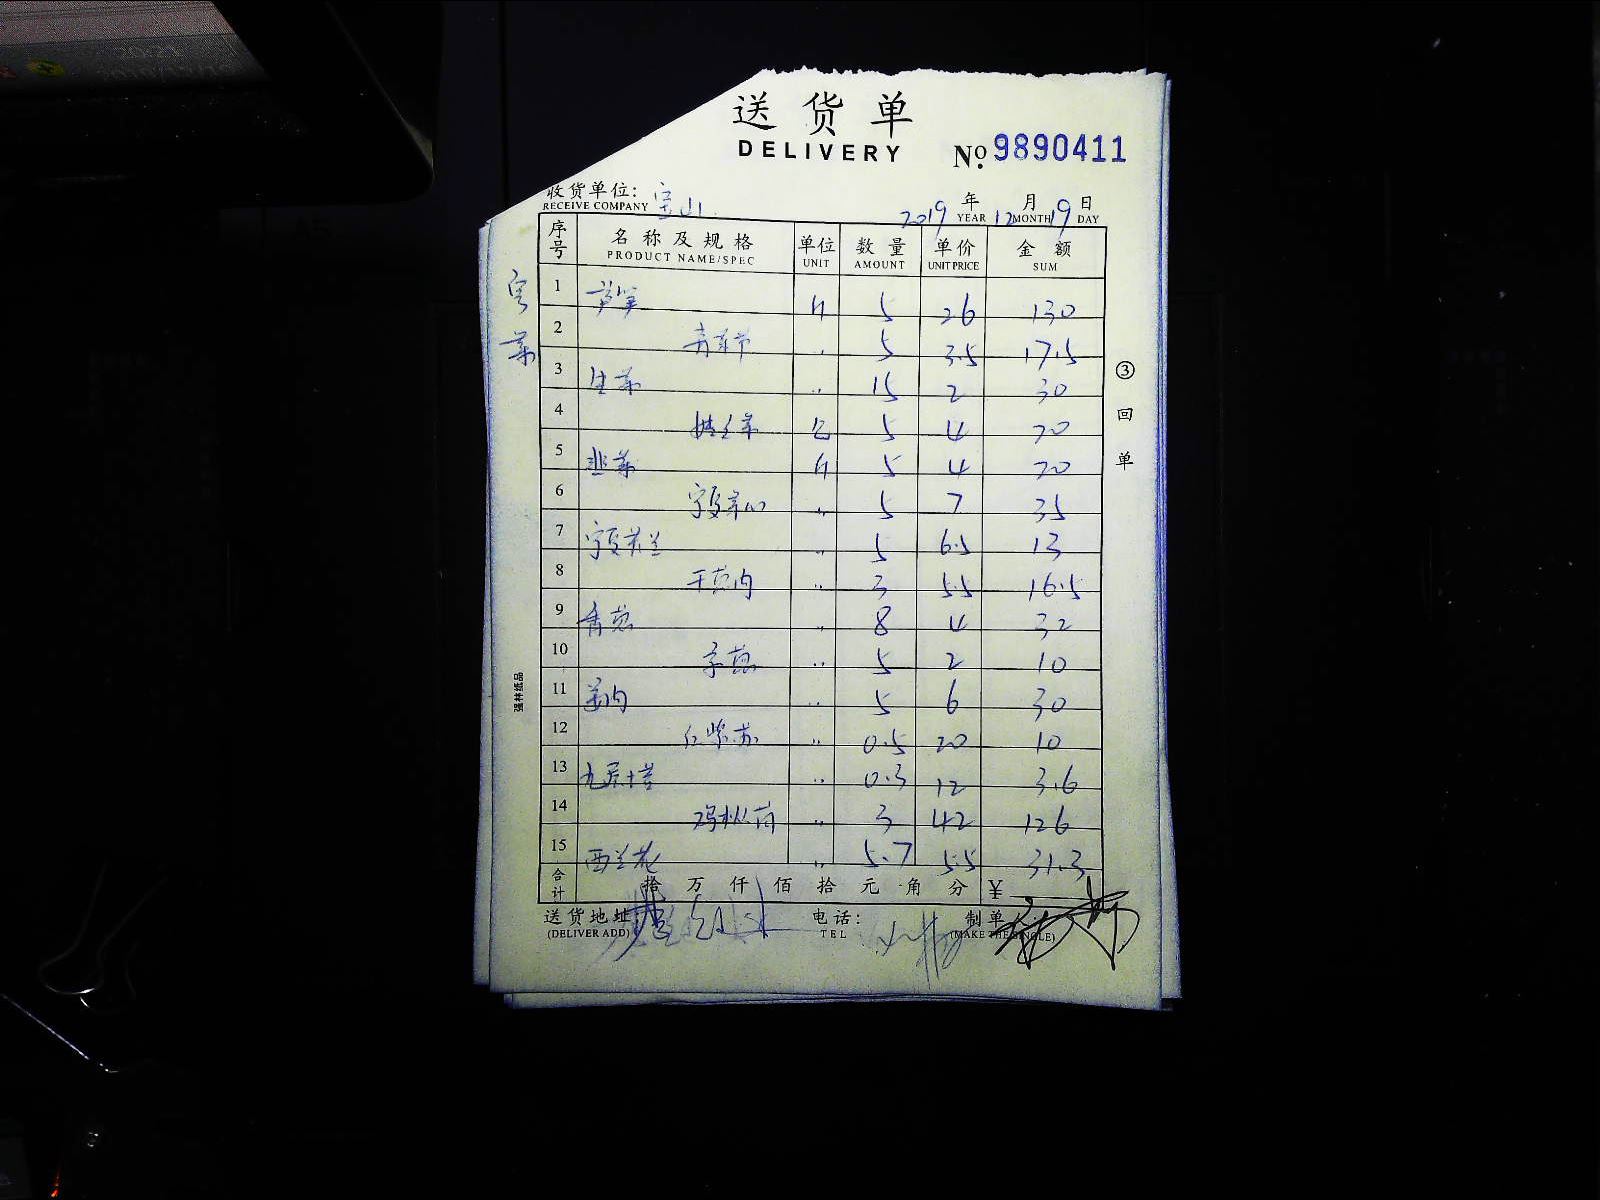 送货单
DELIVERY
№ 9890411
收货单位: 宝山
RECEIVE COMPANY
2019 年 12 月 19 日
YEAR MONTH DAY
序号 名称及规格 单位 数量 单价 金额
PRODUCT NAME/SPEC UNIT AMOUNT UNIT PRICE SUM
1 芦笋 斤 5 26 130
2 5 3.5 17.5
3 生菜 〃 15 2 30
4 娃娃菜 包 5 4 20
5 韭菜 斤 5 4 20
6 宁夏菜心 〃 5 7 35
7 宁夏芥兰 〃 5 6.5 13
8 干葱肉 〃 3 5.5 16.5
9 香葱 〃 8 4 32
10 京葱 〃 5 2 10
11 姜肉 〃 5 6 30
12 红紫苏 〃 0.5 20 10
13 九层塔 〃 0.3 12 3.6
14 鸡枞菌 〃 3 42 126
15 西兰花 〃 5.7 5.5 31.3
合计 拾 万 仟 佰 拾 元 角 分 ¥
送货地址
(DELIVER ADD)
电话:
TEL
制单人:
(MAKE THE SINGLE)
③回单
强林纸品